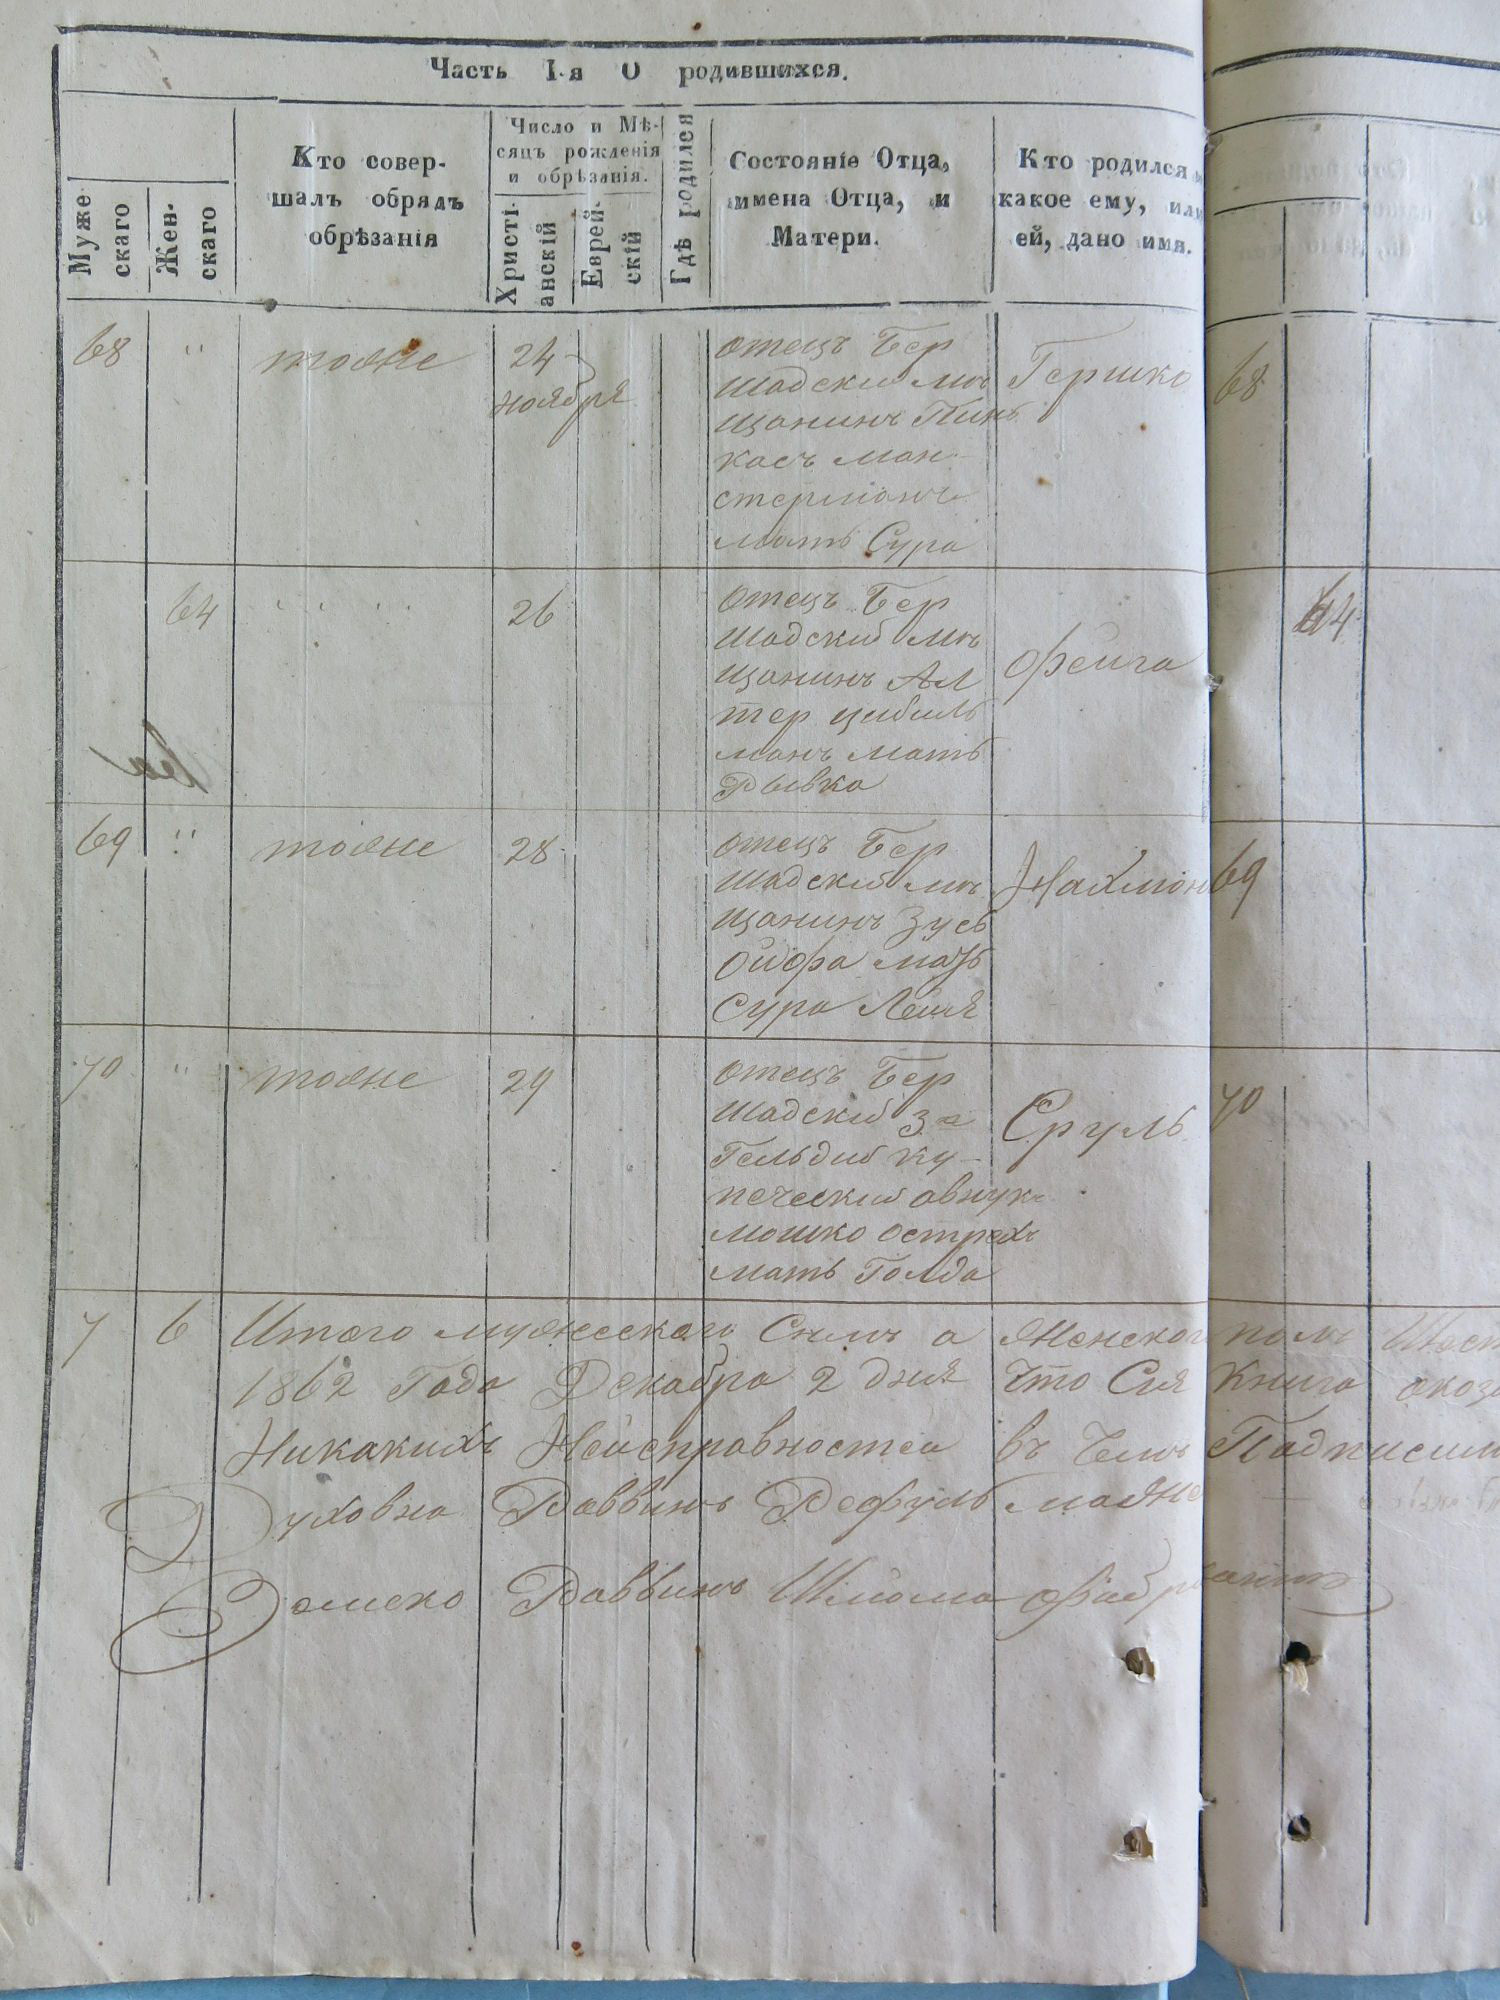 Часть I-я О родившихся.
Муже
скаго
Жен-
скаго
Кто совер-
шалъ обрядъ
обрѣзанія
Число и Мѣ-
сяцъ рожденія
и обрѣзанія.
Христі-
анскій
Еврей-
скій
Гдѣ родился
Состояніе Отца,
имена Отца, и
Матери.
Кто родился и
какое ему, или
ей, дано имя.
68 " тоже 24 ноября
отецъ Бер
шадский мѣ
щанинъ Пинь
касъ Ман-
стерманъ
мать Сура
Гершко
68
64 " " 26
отецъ Бер
шадский мѣ
щанинъ Ал
тер Цибиль
манъ мать
Рывка
Фейга
64
69 " тоже 28
отецъ Бер
шадский мѣ
щанинъ Зусь
Ойфа мать
Сура Лейя
Нахмон
69
70 " тоже 29
отецъ Бер
шадский 3й
Гельдии ку-
печеский внук
Мошко Острехъ
мать Голда
Сруль
70
7 6 Итого мужескаго Семъ а женског полъ Шест
1862 Года Декабра 2 дня Что Сия Книга оказа
Никакихъ Нейсправностей въ чемъ Подписим
Духовна Раввинъ Рефуль
Раввинъ Шлиома Фабрикантъ